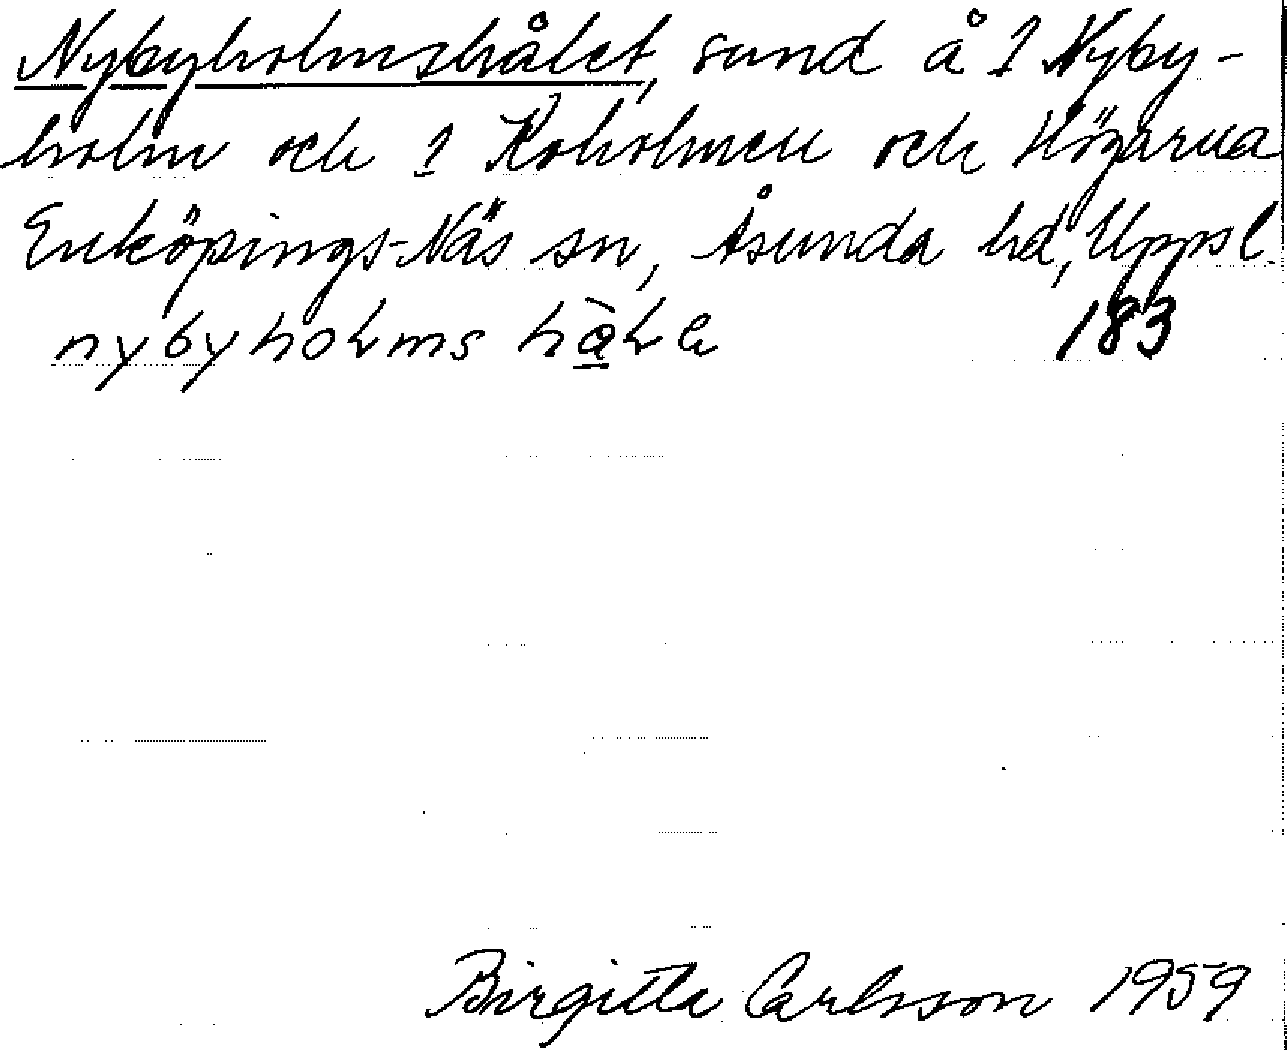 Nybyholmshålet, sund å 1 Nyby-
holm och 1 Koholmen och Högarna
Enköpings-Näs sn, Åsunda hd, Uppsl.
nybyholms 183
Birgitta Carlsson 1959